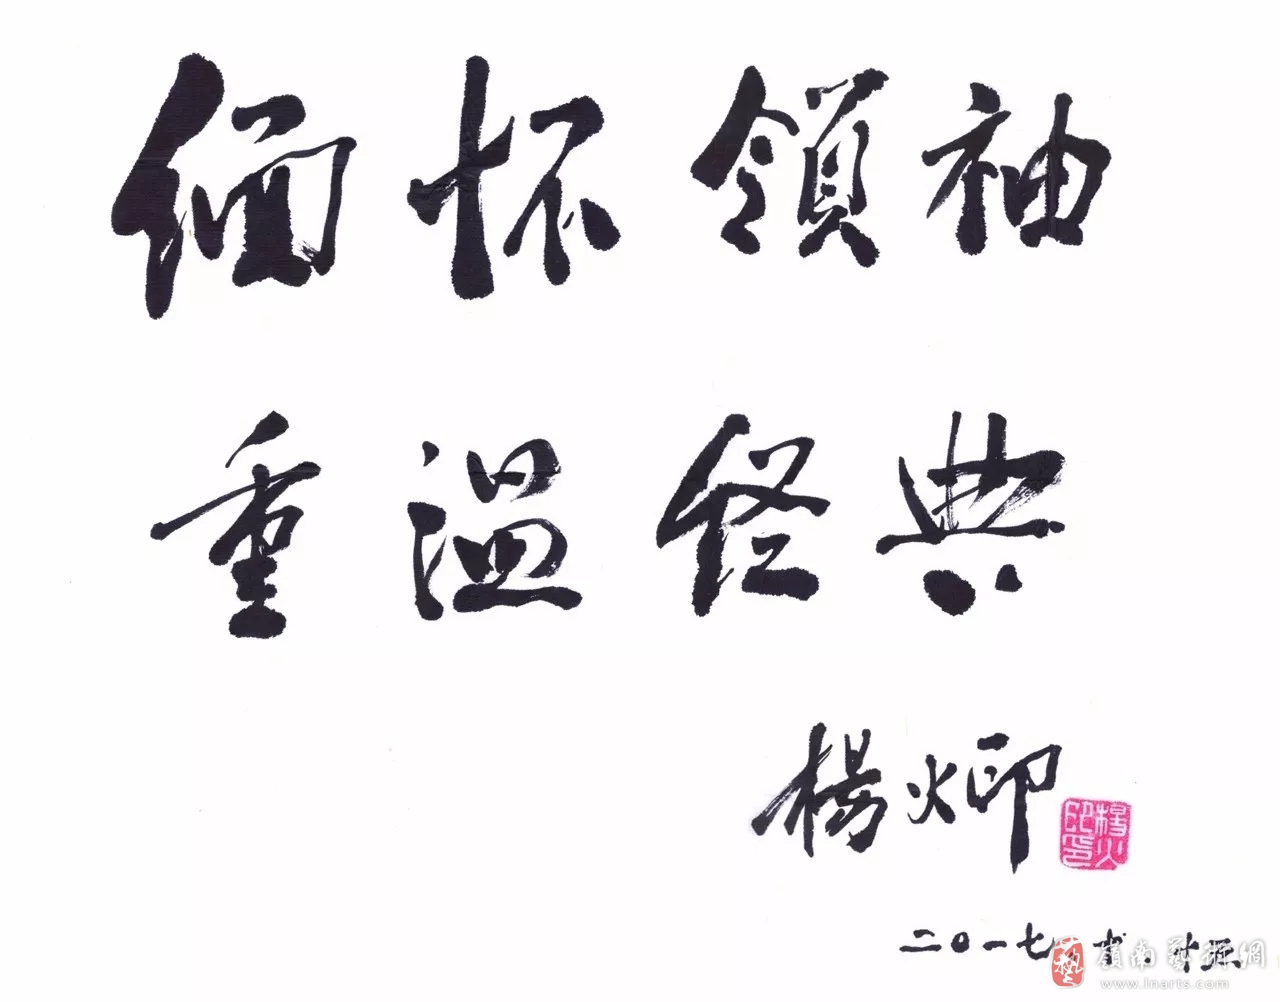 缅怀領袖
重温经典
楊火印
二〇一七
嶺南藝術網
www.lnarts.com